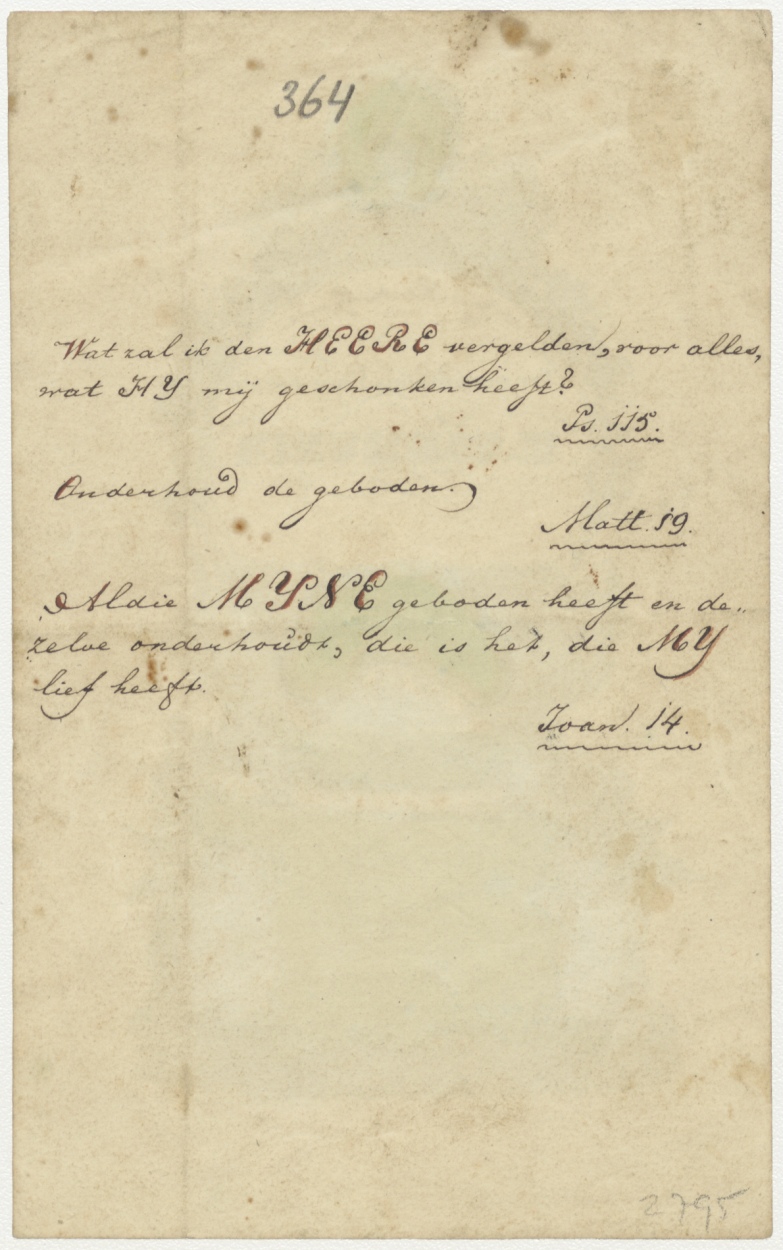 364
Wat zal ik den HEERE vergelden, voor alles,
wat HY mij geschonken heeft?
Ps. 115.
Onderhoud de geboden.
Matt. 19.
Al die MYNE geboden heeft en de„
zelve onderhoudt, die is het, die MY
lief heeft.
Joan. 14.
2795